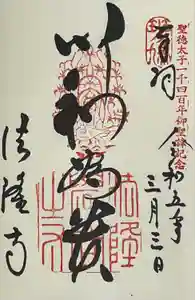 聖徳太子一千四百年御聖諱記念
奉拝
令和五年
三月三日
以和為貴
法隆寺